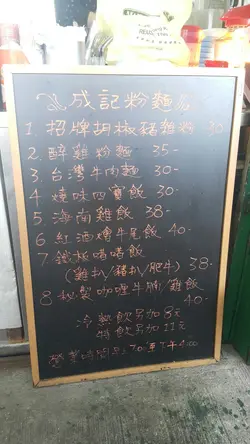 成記粉麵
1 招牌胡椒豬雞粉 30
2 醉雞粉麵 35-
3 台灣牛肉麵 30-
4 燒味四寶飯 30-
5 海南雞飯 38-
6 紅酒燴牛尾飯 40-
7 鐵板嗜嗜飯
(雞扒/豬扒/肥牛) 38-
8 秘製咖喱牛腩/雞飯
40-
冷熱飲另加8元
特飲另加11元
營業時間 7:30 至下午4:00